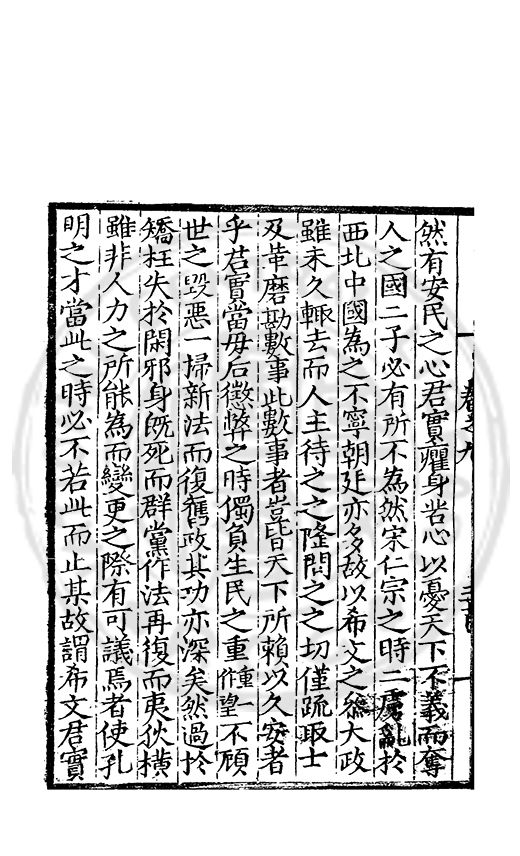 然有安民之心君實癯身峇心以憂天下不義而奪
人之國二子必有所不為然宋仁宗之時二虜亂於
西北中國為之不寧朝廷亦多故以希文之叅大政
雖未久輙去而人主待之之隆問之之切僅疏取士
及革磨勘數事此數事者豈皆天下所賴以久安者
乎君實當母后懲弊之時獨負生民之重重一作望不顧
世之毀惡一掃新法而復舊政其功亦深矣然過於
矯枉失於閑邪身既死而群黨作法再復而夷狄橫
雖非人力之所能為而變更之際有可議焉者使孔
明之才當此之時必不若此而止某故謂希文君實
卷之九